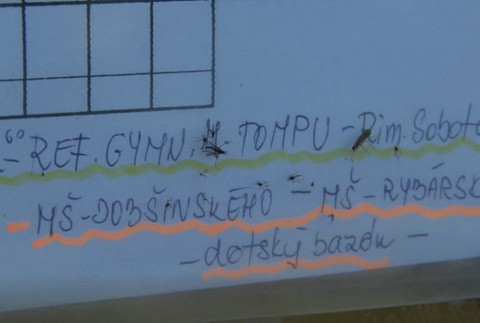 - REF. GYMN. M. TOMPU - Rim. Sobot
- MŠ - DOBŠINSKÉHO - MŠ - RYBÁRSK
- dotský bázdu -